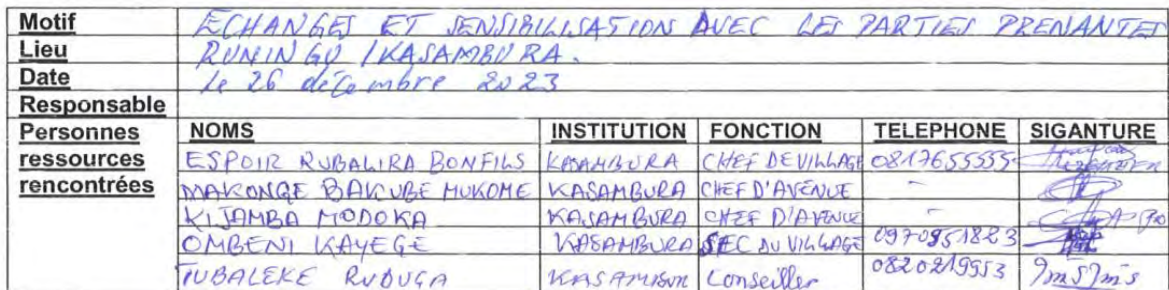 Motif ECHANGES ET SENSIBILISATION AVEC LES PARTIES PRENANTES
Lieu RUNINGU / KASAMBURA.
Date le 26 décembre 2023
Responsable
Personnes ressources rencontrées
NOMS INSTITUTION FONCTION TELEPHONE SIGANTURE
ESPOIR RUBALIRA BONFILS KASAMBURA CHEF DE VILLAGE 0817655555
MAKONGE BAKUBE MUKOME KASAMBURA CHEF D'AVENUE -
KIJAMBA MODOKA KASAMBURA CHEF D'AVENUE -
OMBENI KAYEGE KASAMBURA SEC DU VILLAGE 0970951823
TUBALEKE RUDUGA Conseiller 0820219953